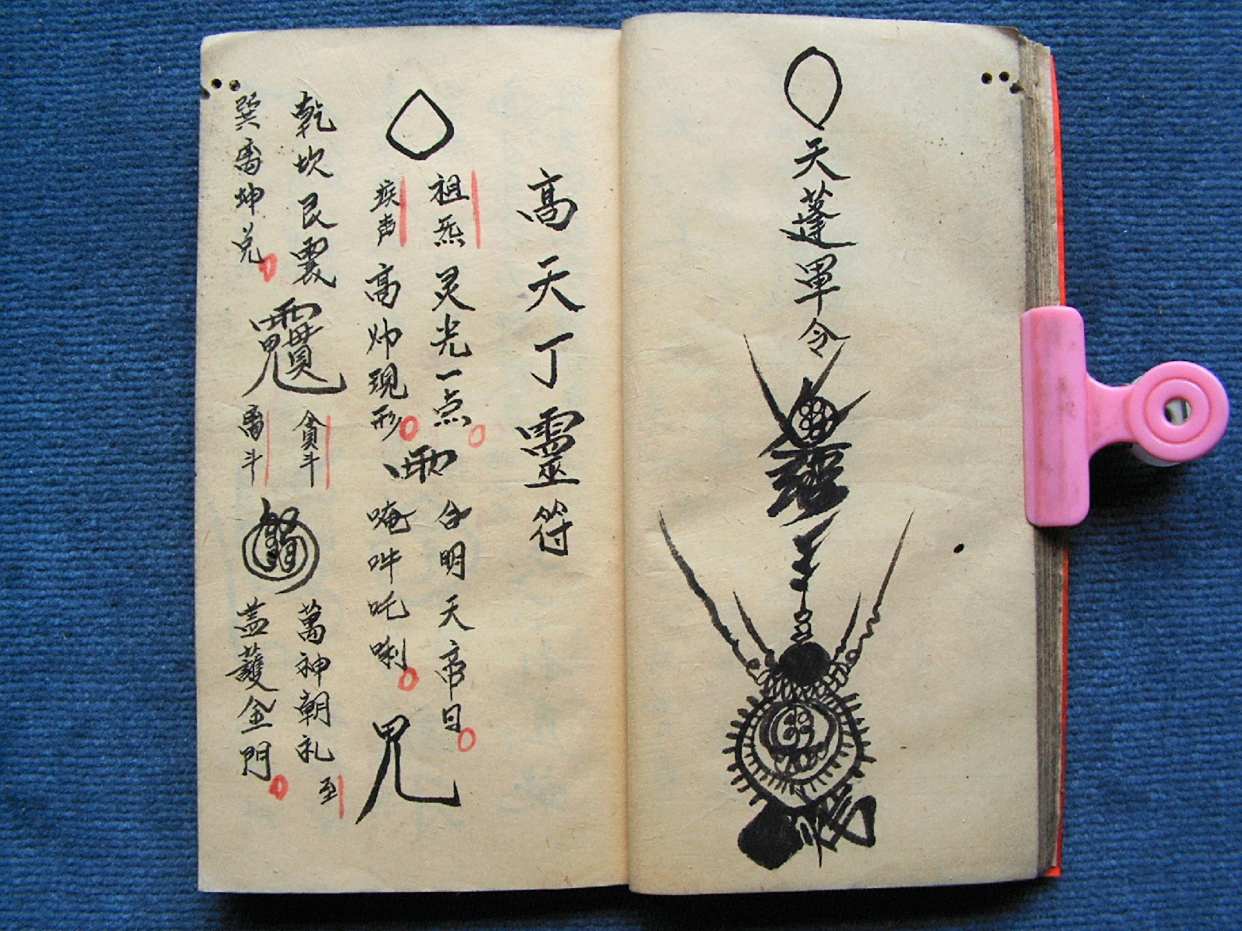 天蓬軍令
高天丁靈符
祖炁 灵光一点 合明天帝日
疾声 高帅現形 唵吽吒唎
乾坎艮震 貪斗 萬神朝礼 至
巽离坤兑 斗 盖護金門